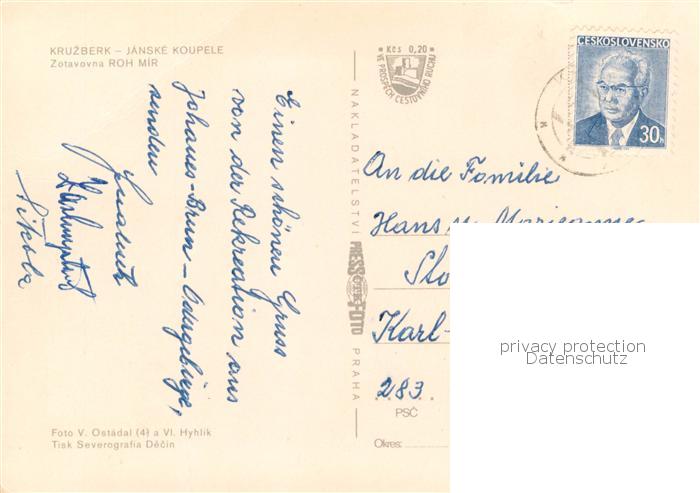 KRUŽBERK – JÁNSKÉ KOUPELE
Zotavovna ROH MÍR
Einen schönen Gruss
von der Rekreation aus
Johanes-Brun – Odergebirge,
senden
Nikola
Foto V. Ostádal (4) a Vl. Hyhlík
Tisk Severografia Děčín
NAKLADATELSTVÍ
PRESSFOTO
PRAHA
* Kčs 0,20 *
VE PROSPĚCH CESTOVNÍHO RUCHU
ČESKOSLOVENSKO
30h
An die Familie
Hans u.
Karl-
283
PSČ
Okres:
privacy protection
Datenschutz